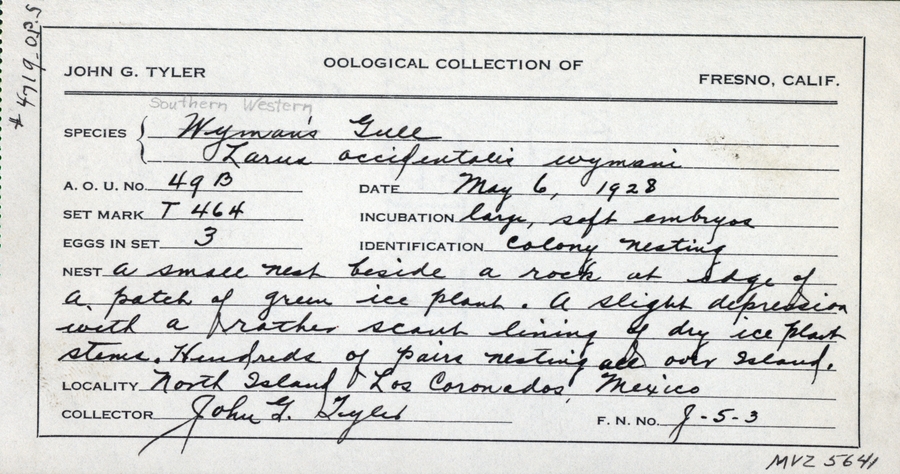 # 4719 O.P.S
OOLOGICAL COLLECTION OF
JOHN G. TYLER FRESNO, CALIF.
Southern Western
SPECIES { Wyman's Gull
Larus occidentalis wymani
A. O. U. NO. 49 B DATE May 6, 1928
SET MARK T 464 INCUBATION large, soft embryos
EGGS IN SET 3 IDENTIFICATION colony nesting
NEST A small nest beside a rock at edge of
a patch of green ice plant. A slight depression
with a rather scant lining of dry ice plant
stems. Hundreds of pairs nesting all over Island.
LOCALITY North Island Los Coronados, Mexico
COLLECTOR John G. Tyler F. N. NO. J-5-3
MVZ 5641